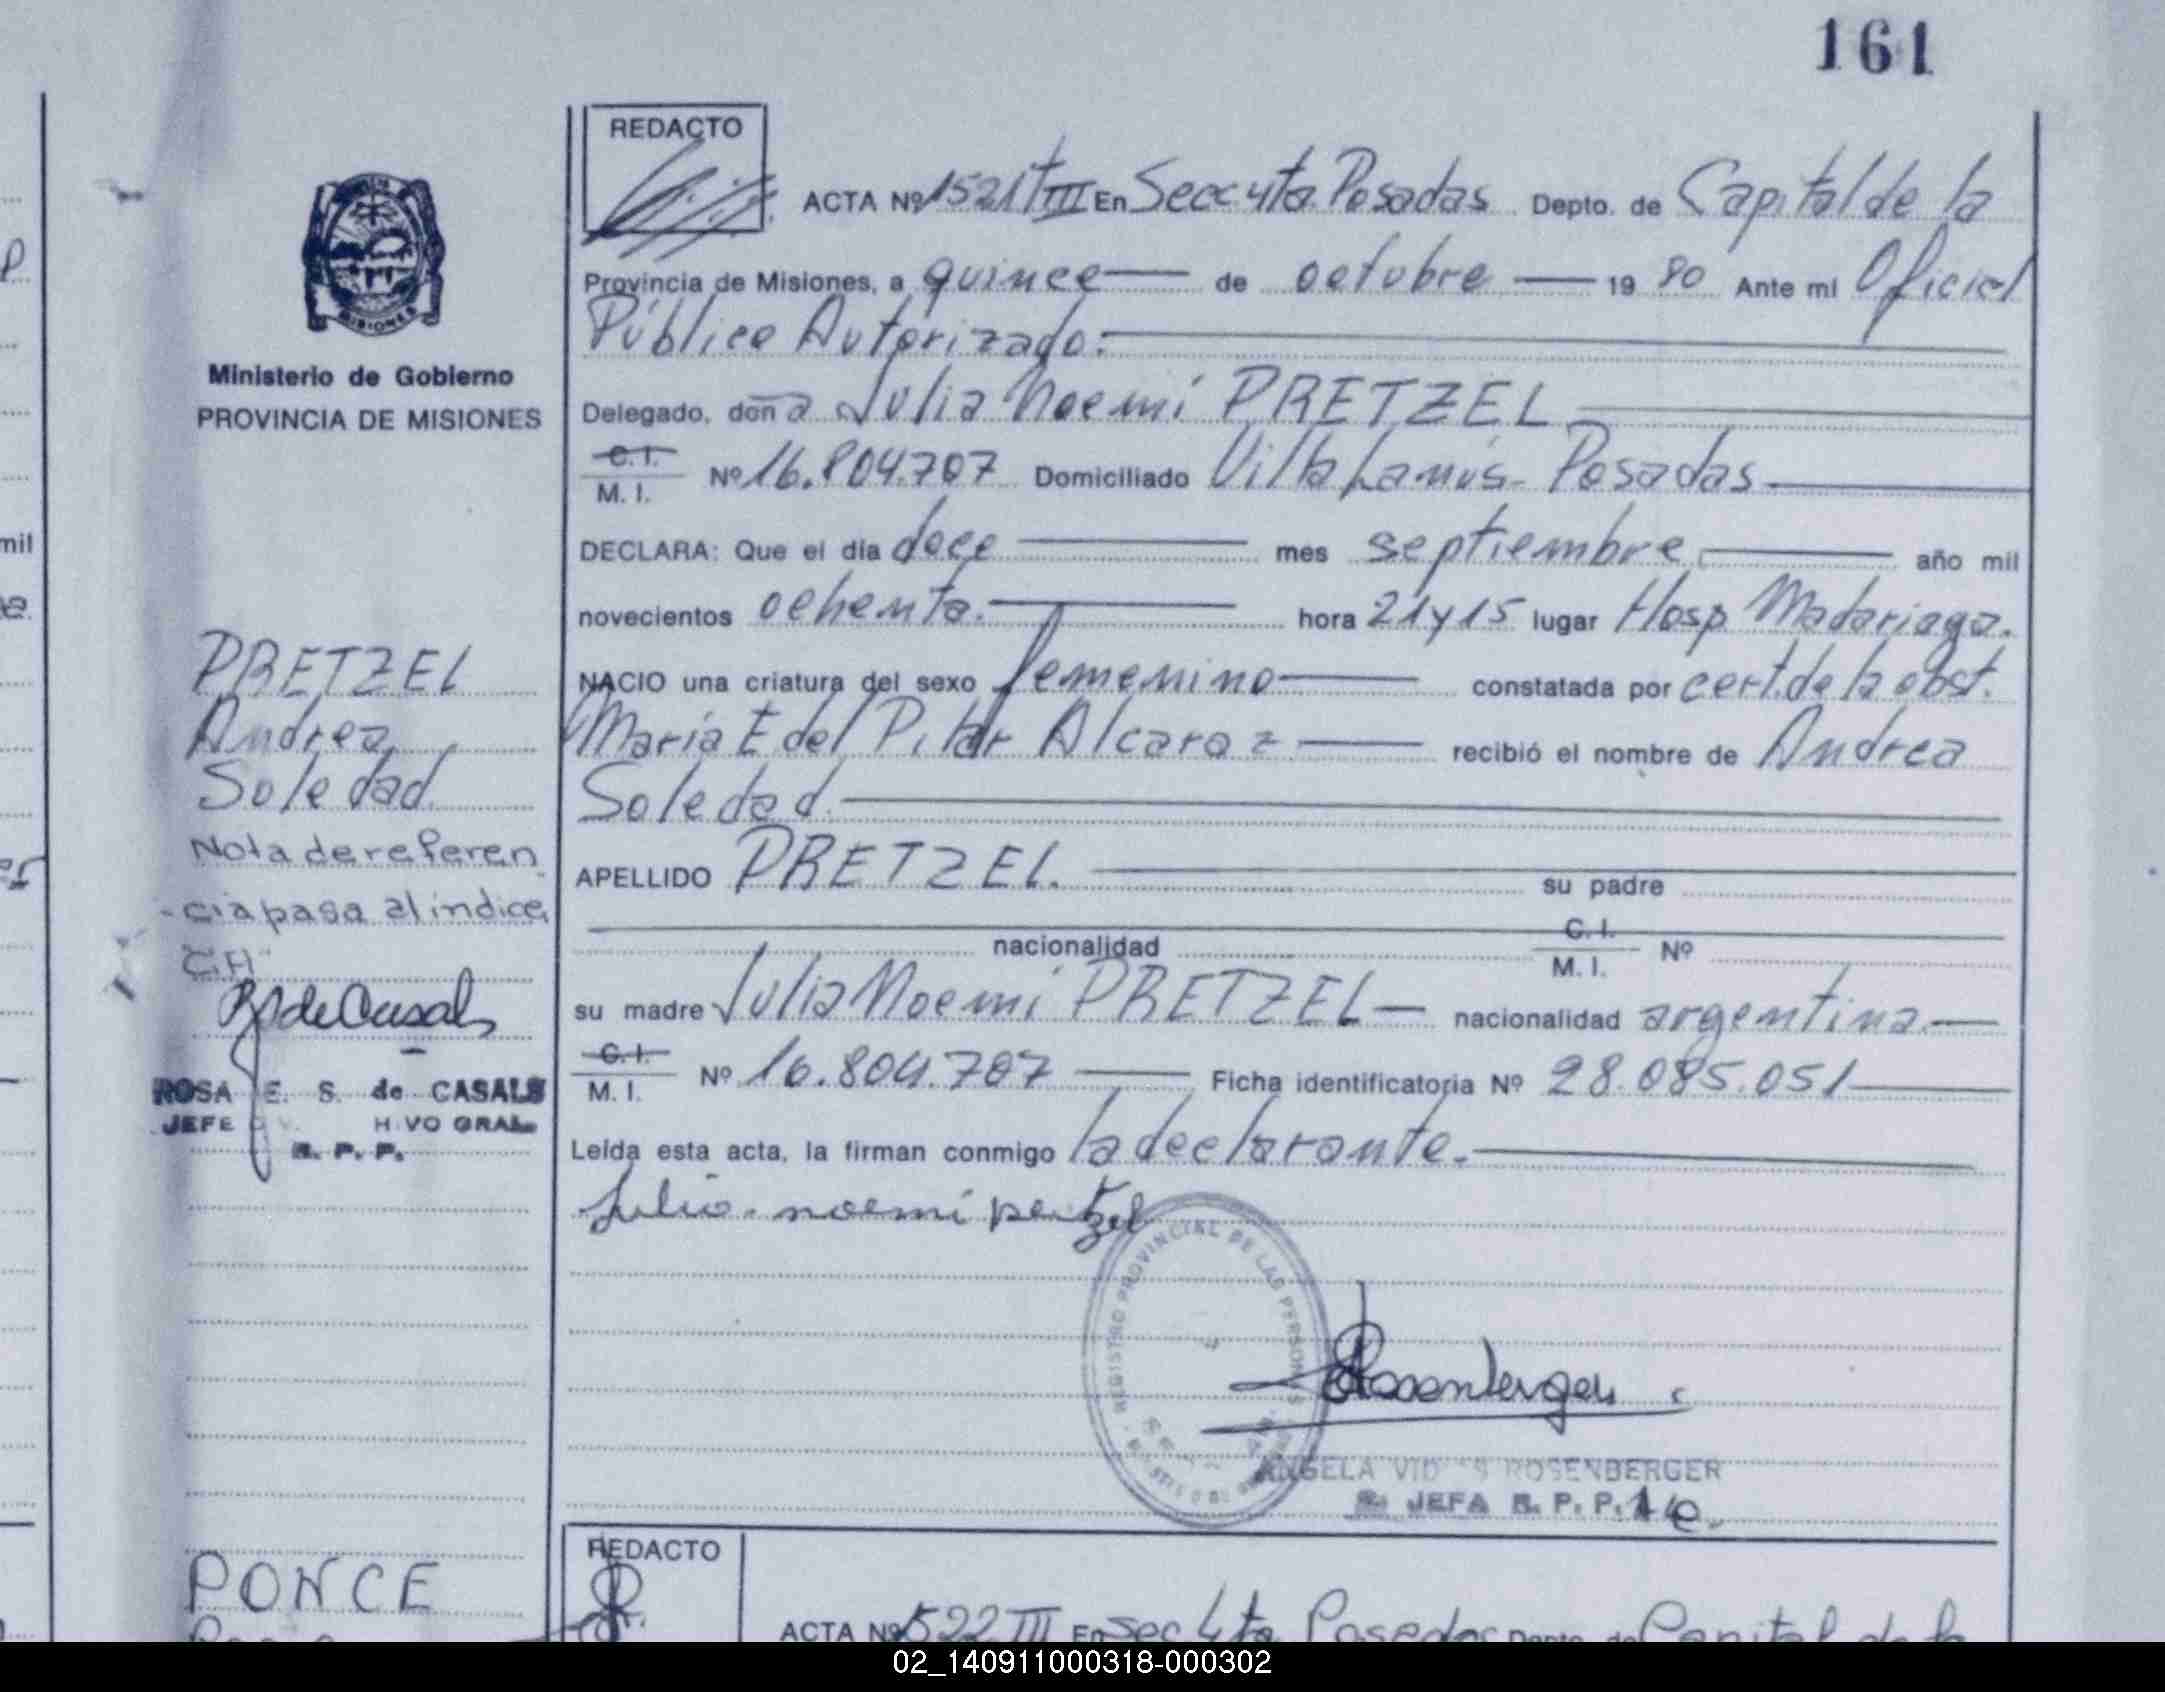 161
REDACTO
ACTA Nº 1521 T III En Secc 4ta Posadas Depto. de Capital de la
Provincia de Misiones, a quince de octubre 19 80 Ante mi Oficial
Público Autorizado.
Ministerio de Gobierno
PROVINCIA DE MISIONES
Delegado, don a Julia Noemí PRETZEL
C. I.
M. I. Nº 16.804.707 Domiciliado Villa Lanús - Posadas
DECLARA: Que el día doce mes septiembre año mil
novecientos ochenta. hora 21 y 15 lugar Hosp. Madariaga.
NACIO una criatura del sexo femenino constatada por cert. de la obst.
María E del Pilar Alcaraz recibió el nombre de Andrea
Soledad.
APELLIDO PRETZEL. su padre
nacionalidad C. I.
M. I. Nº
su madre Julia Noemí PRETZEL nacionalidad argentina
C. I.
M. I. Nº 16.804.707 Ficha identificatoria Nº 28.085.051
Leída esta acta, la firman conmigo la declarante.
Julia noemi
REGISTRO PROVINCIAL DE LAS PERSONAS
Rosenberger
ANGELA ROSENBERGER
JEFA R. P. P.
PRETZEL
Andrea
Soledad
Nota de referen
cia pasa al indice,
C.H
de Casals
ROSA E. S. de CASALS
JEFE
R. P. P.
PONCE
REDACTO
ACTA Nº 1522 III En Sec 4ta Posadas Depto. de Capital de la
mil
02_140911000318-000302